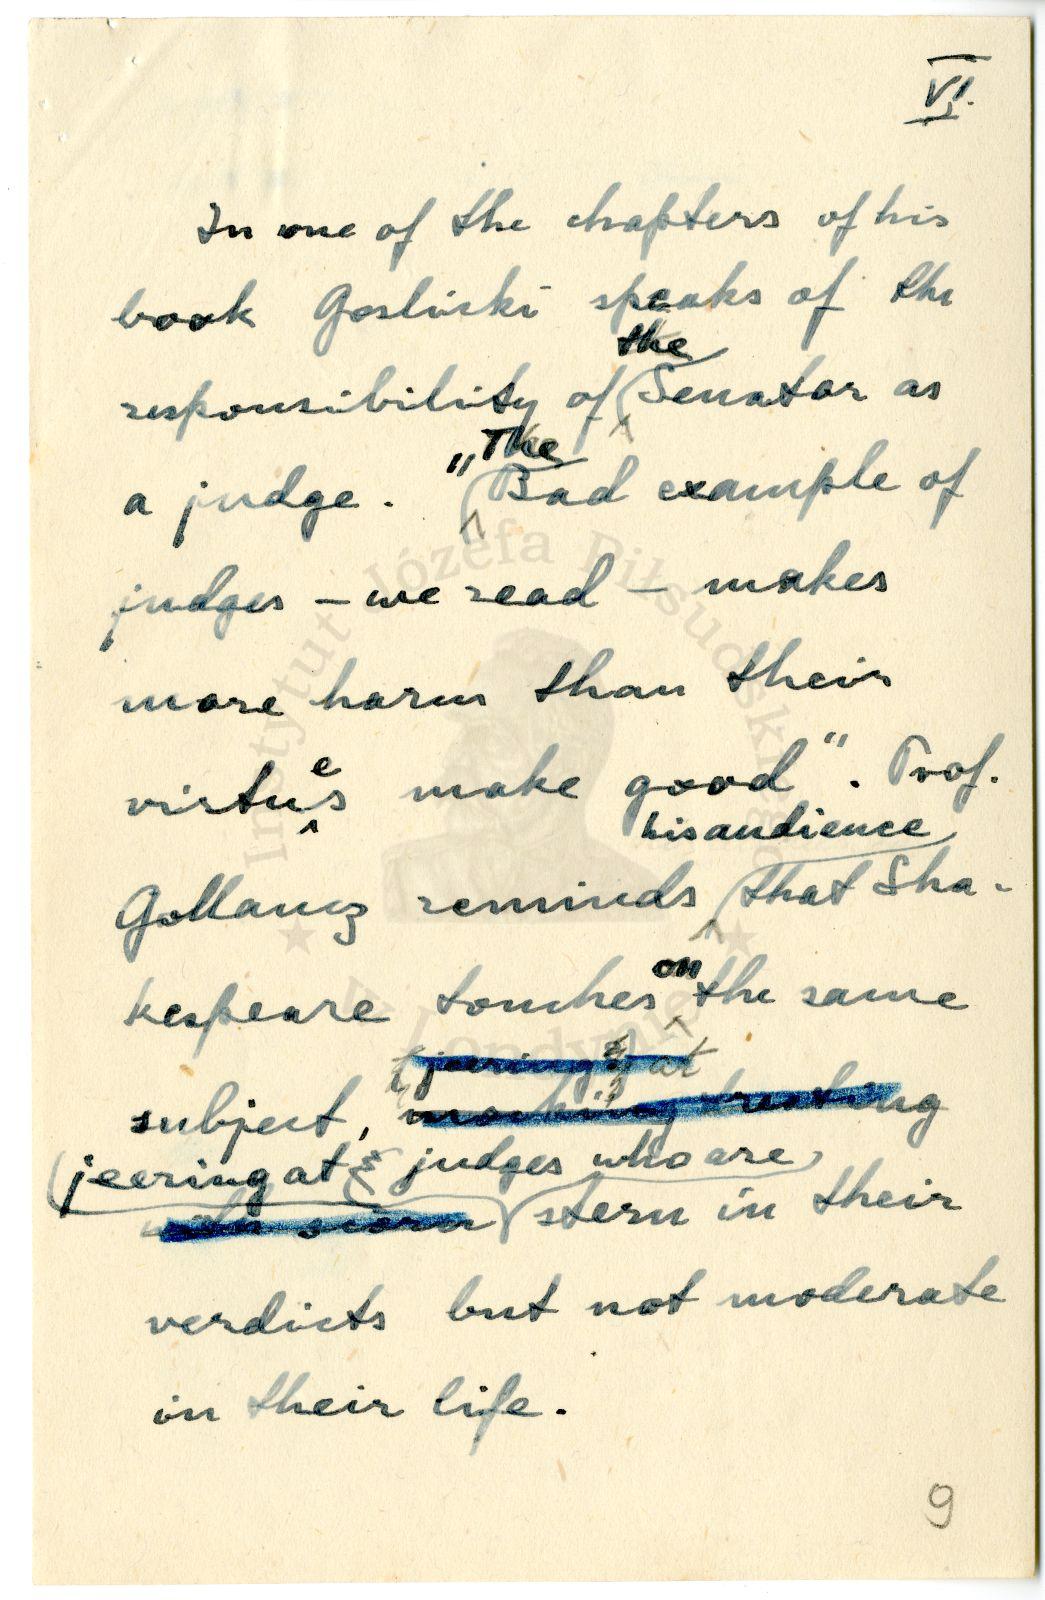 VI.
In one of the chapters of his
book Goslicki speaks of the
the
responsibility of Senator as
"The
a judge. Bad example of
judges – we read – makes
more harm than their
virtues make good". Prof.
his audience
Gollancz reminds that Sha-
on
kespeare touches the same
jeering at
subject, mocking treating
jeering at judges who are
with scorn stern in their
verdicts but not moderate
in their life.
9
Instytut Józefa Piłsudskiego
w Londynie